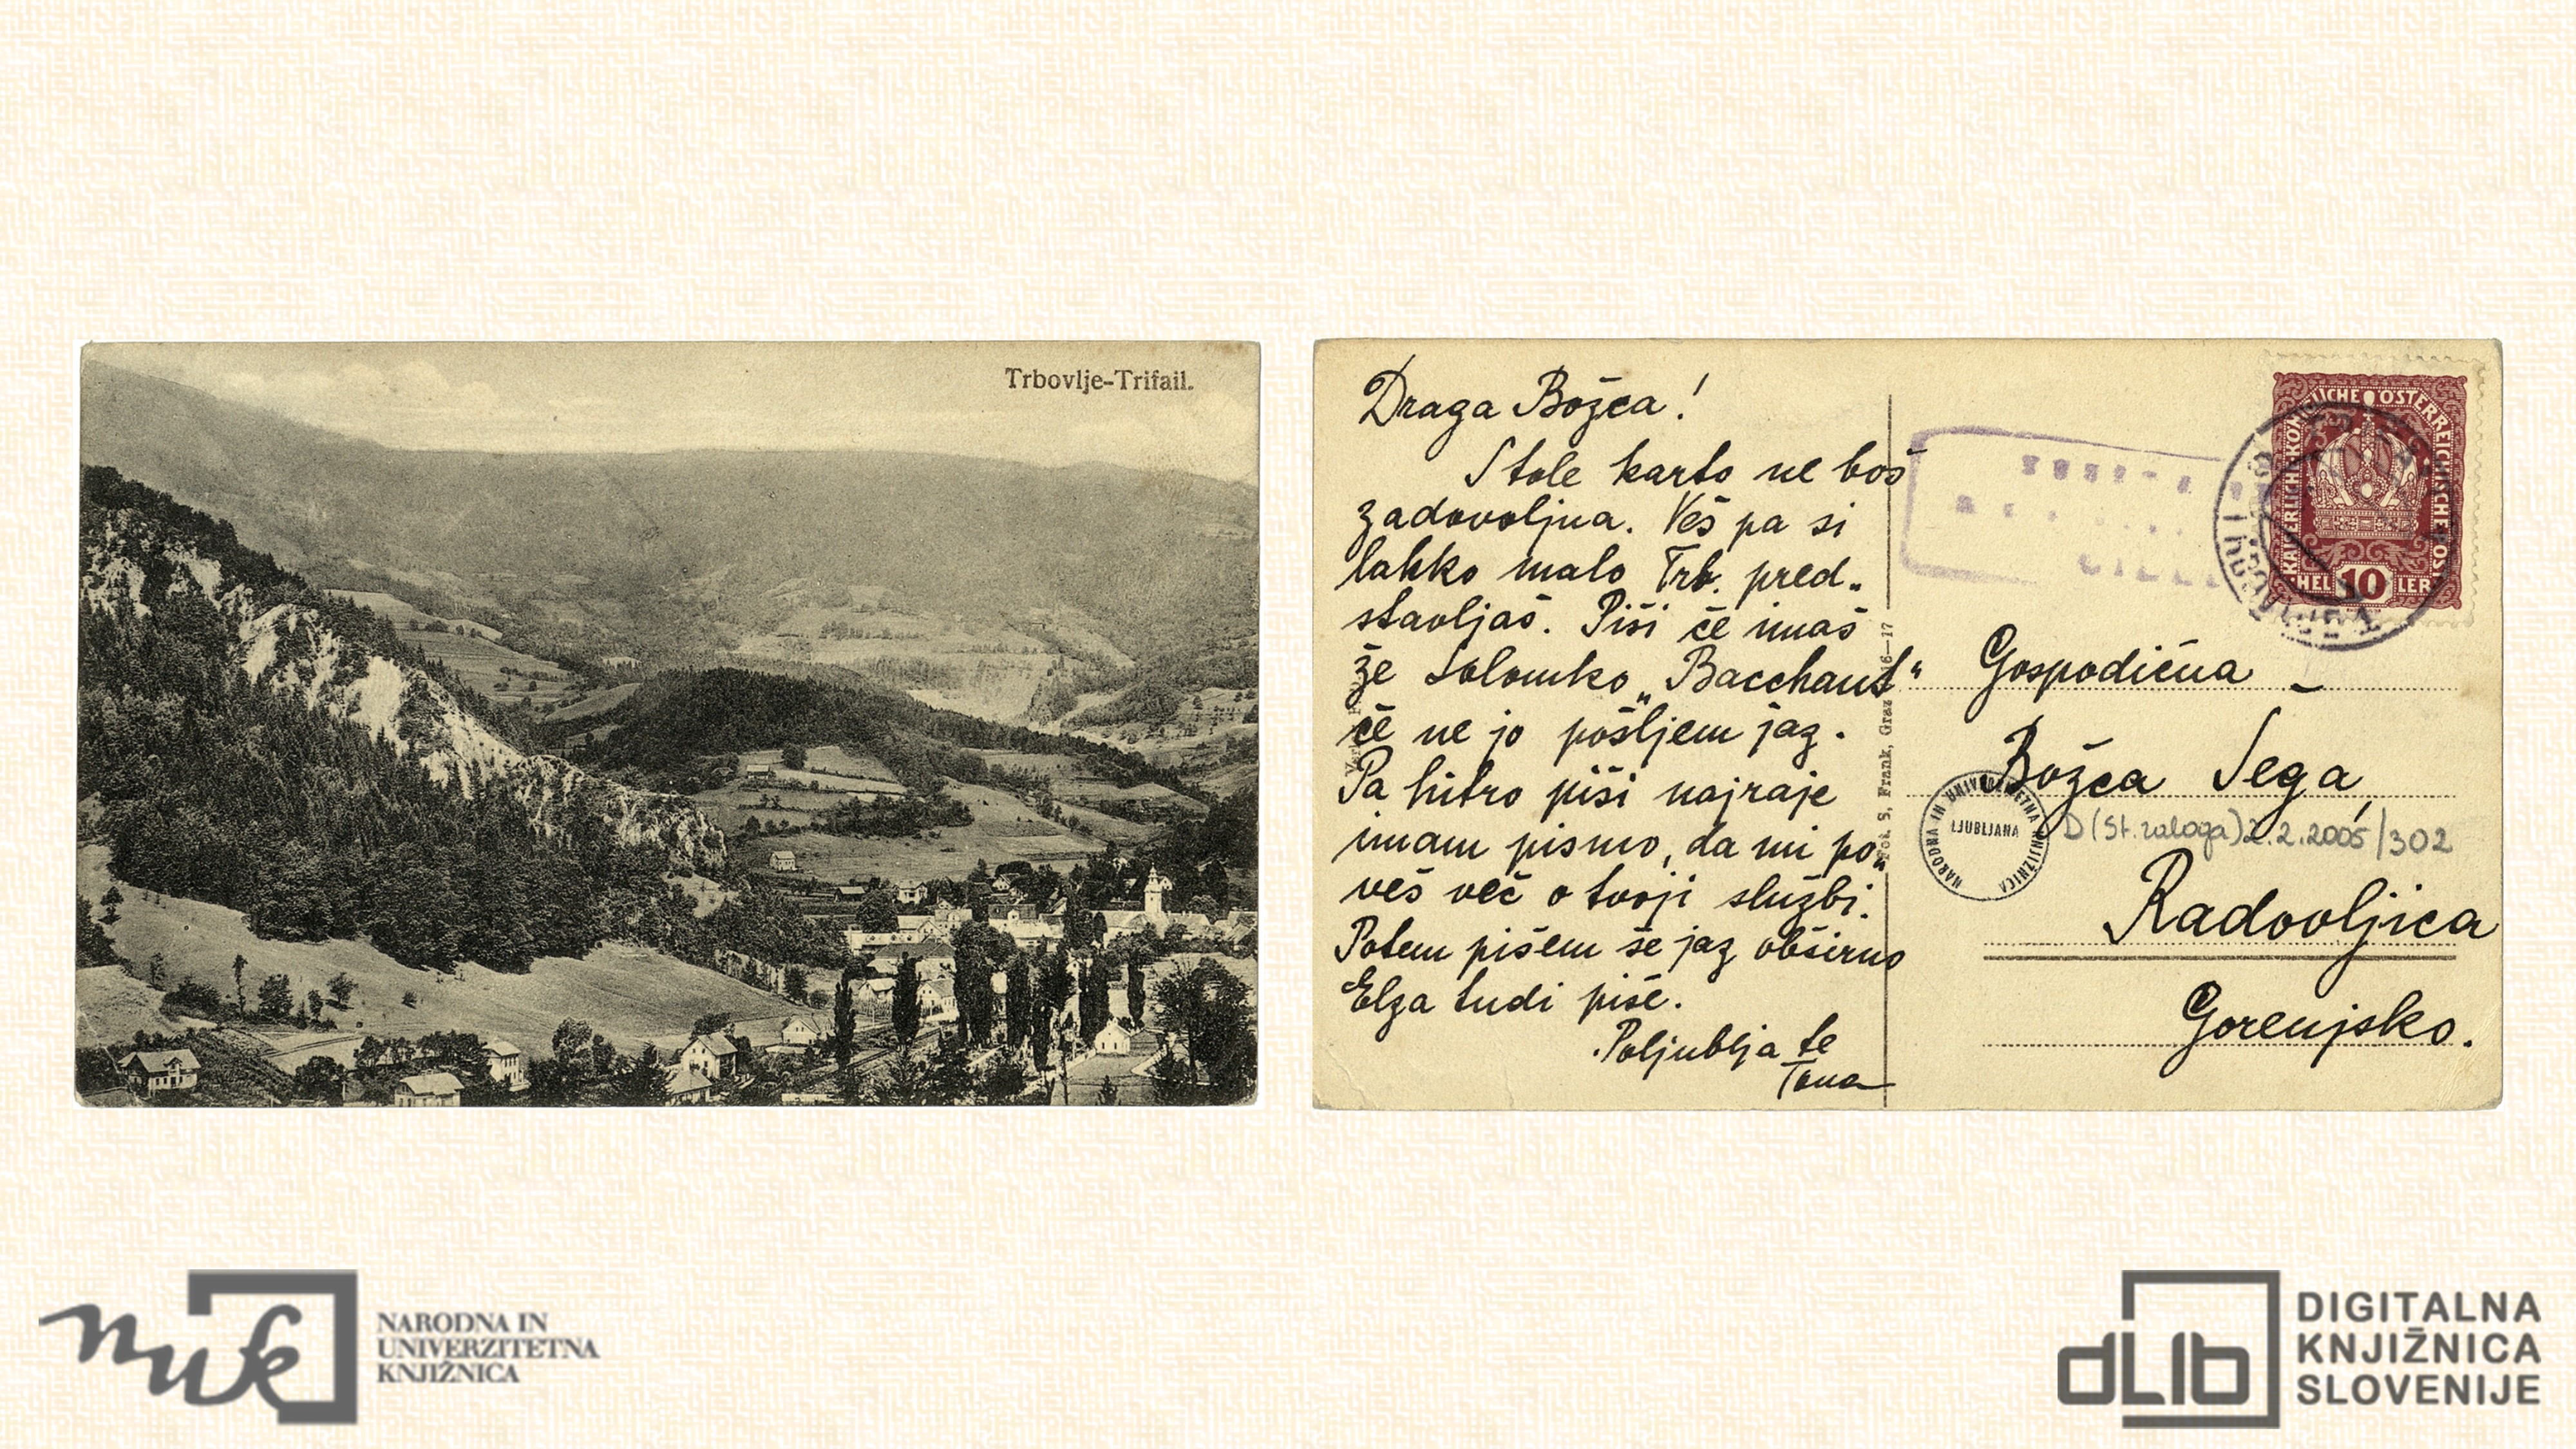 Trbovlje-Trifail.
Draga Božca!
S tole karto ne boš
zadovoljna. Veš pa si
lahko malo Trb. pred-
stavljaš. Piši če imaš
že Solomko „Bacchant“
če ne jo pošljem jaz.
Pa hitro piši najraje
imam pismo, da mi po-
veš več o tvoji službi.
Potem pišem še jaz obširno
Elza tudi piše.
Poljublja te
Tona
Fot. S. Frank, Graz 16—17
KAISERLICHE KÖNIGLICHE ÖSTERREICHISCHE POST
HEL 10 LER
Gospodična
Božca Sega,
NARODNA IN UNIVERZITETNA KNJIŽNICA
LJUBLJANA
D (St. zaloga) 2.2.2005/302
Radovljica
Gorenjsko.
nuk
NARODNA IN
UNIVERZITETNA
KNJIŽNICA
dLib
DIGITALNA
KNJIŽNICA
SLOVENIJE